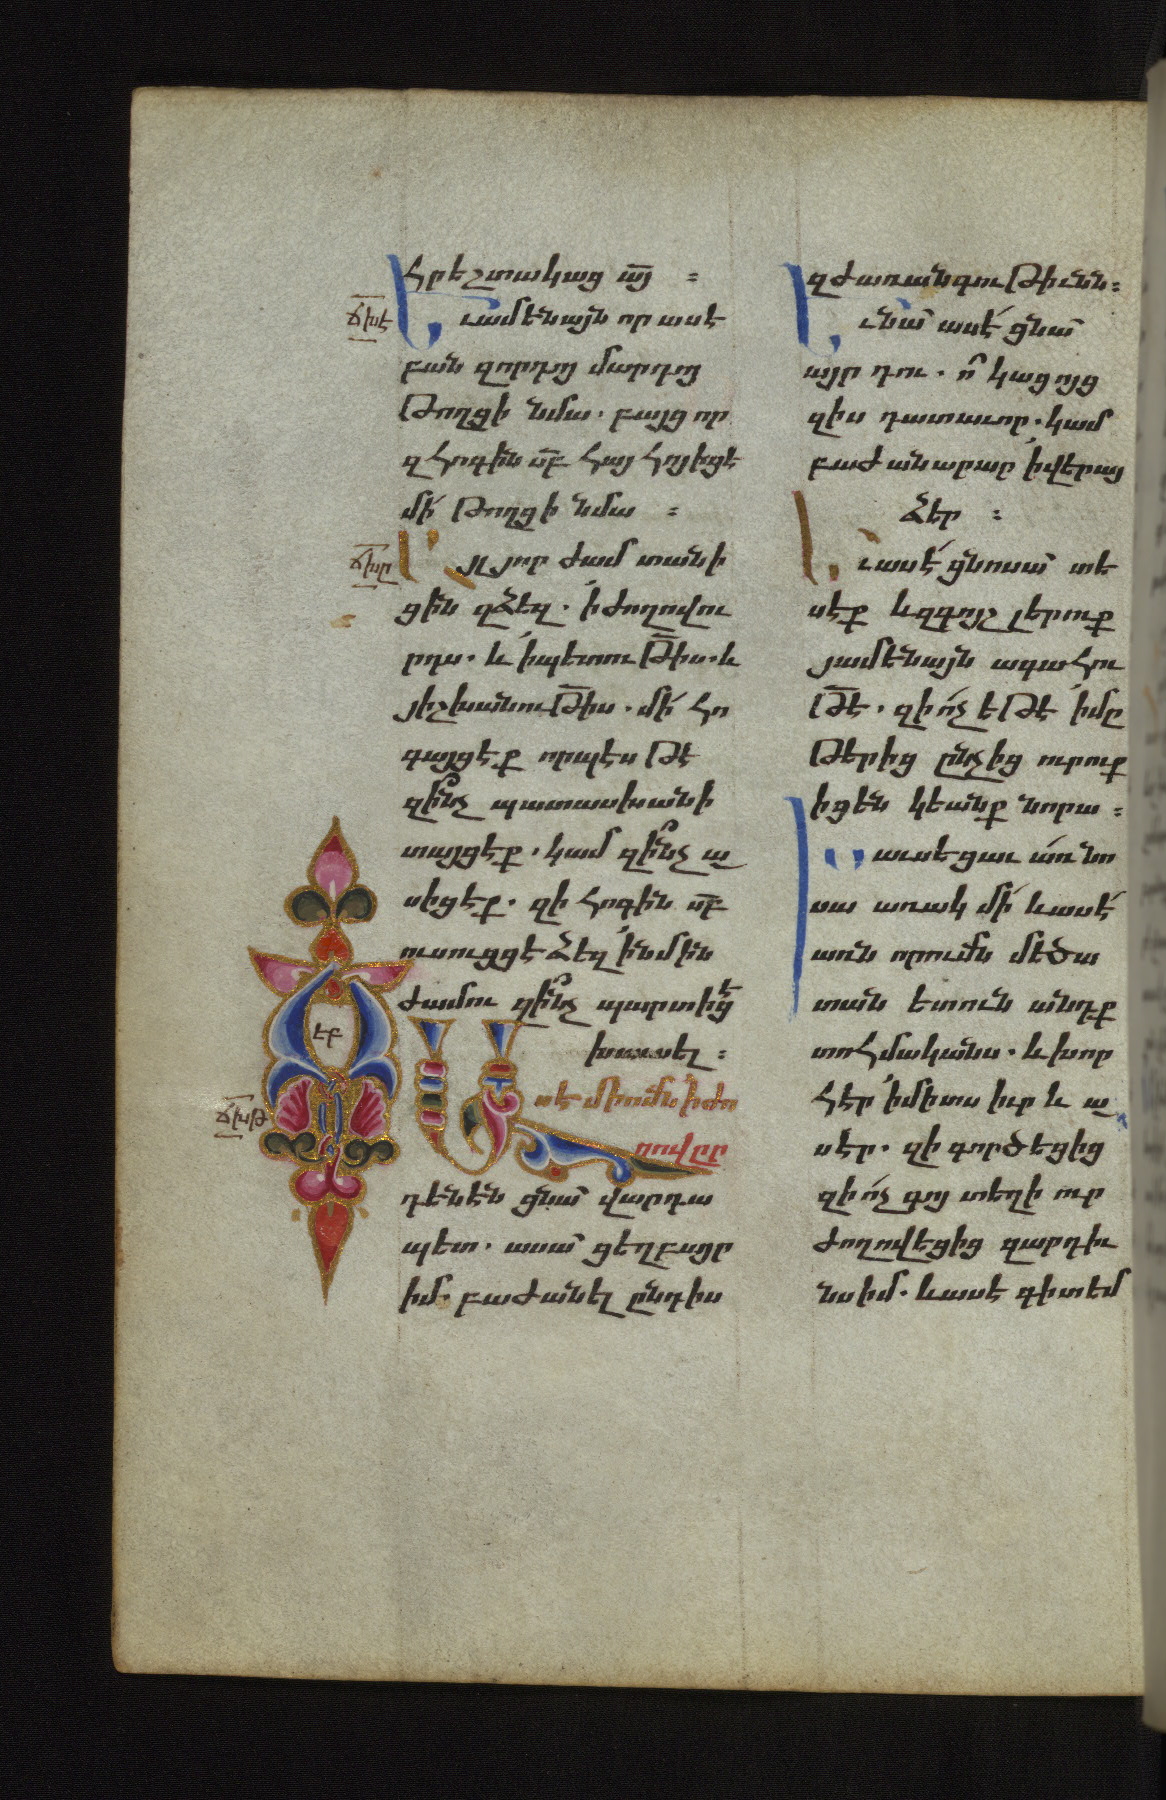 հրեշտակաց ա՟յ :
ճխէ
Եւ ամենայն որ ասէ
բան զորդոյ մարդոյ
թողցի նմա . բայց որ
զհոգին ս՟բ հայհոյիցէ
մի՛ թողցի նմա :
ճխը
Այլ յոր ժամ տանի
ցին զձեզ . ի ժողովու
րդս . և ի պետու թ՟իս . և
յիշխանու թ՟իս . մի՛ հո
գայցէք որպէս թէ
զի՞նչ պատասխանի
տայցէք . կամ զի՞նչ ա
սիցէք . զի հոգին ս՟բ
ուսուցցէ ձեզ ինմին
ժամու զի՞նչ պարտիցէ
խօսել :
էբ
ճխթ
Ասէ միոմն ի ժո
ղովըր
դենէն ցնա՟ վարդա
պետ . ասա՟ ցեղբայր
իմ . բաժանել ընդիս
զժառանգու թիւնն :
Եւ նա՟ ասէ՛ ցնա՟
այր դու . ո՞ կացոյց
զիս դատաւոր . կամ
բաժանարար ի վերայ
ձեր :
Եւ ասէ՛ ցնոսա՟ տե
սէք և զգոյշ լերուք
յամենայն ագահու
թ՟ե . զի ո՛չ եթէ իմը
թերից ընչից ուրուք
իցեն կեանք նորա :
Եւ ասեցաւ առ նո
սա առակ մի՛ և ասէ՛
առն որումն մեծա
տան ետուն անդք
տոհմականս . և խոր
հէր ի միտս իւր և ա
սէր . զի գործեցից
զի ո՛չ գոյ տեղի ուր
ժողովեցից զարդիւ
նս իմ . և ասէ գիտեմ